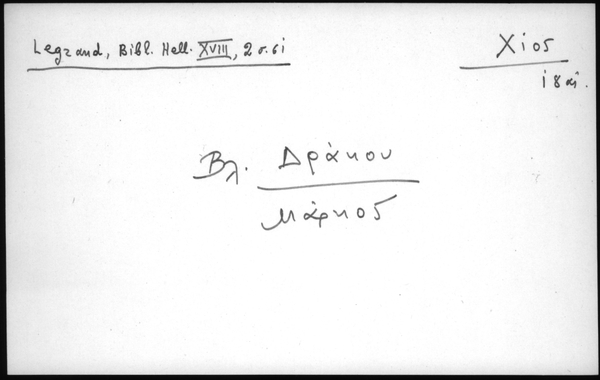 Legrand, Bibl. Hell. XVIII, 2 σ. 61
Χίος
18 αἰ.
Βλ. Δράκου
Μάρκος